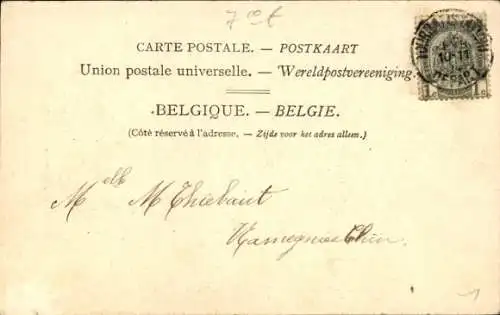 7 00 €
CARTE POSTALE. — POSTKAART
Union postale universelle. — Wereldpostvereeniging.
BELGIQUE. — BELGIE.
(Côté réservé à l'adresse. — Zijde voor het adres alleen.)
10-11
DEPART
1c 1c
Melle M Thiebaut
Ramegnies Chin